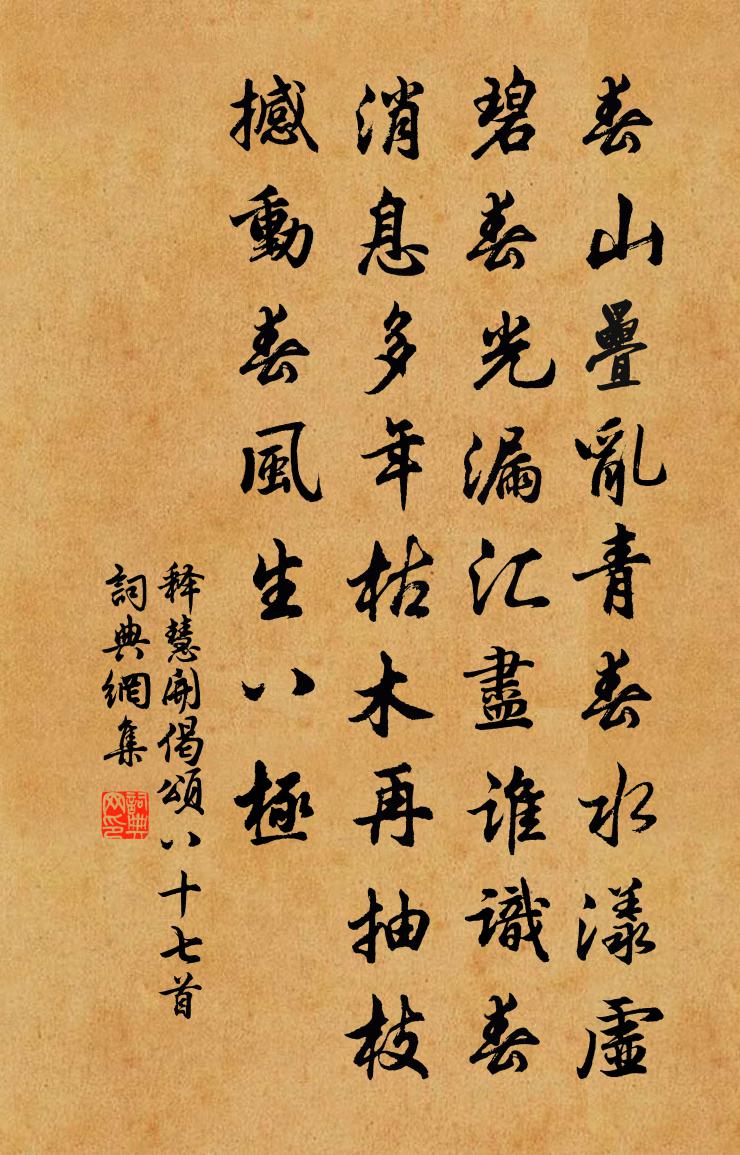 春山疊亂青春水漾虛
碧春光漏汇盡誰識春
消息多年枯木再抽枝
撼動春風生八極
释慧開偈頌八十七首
詞典網集
詞典网印